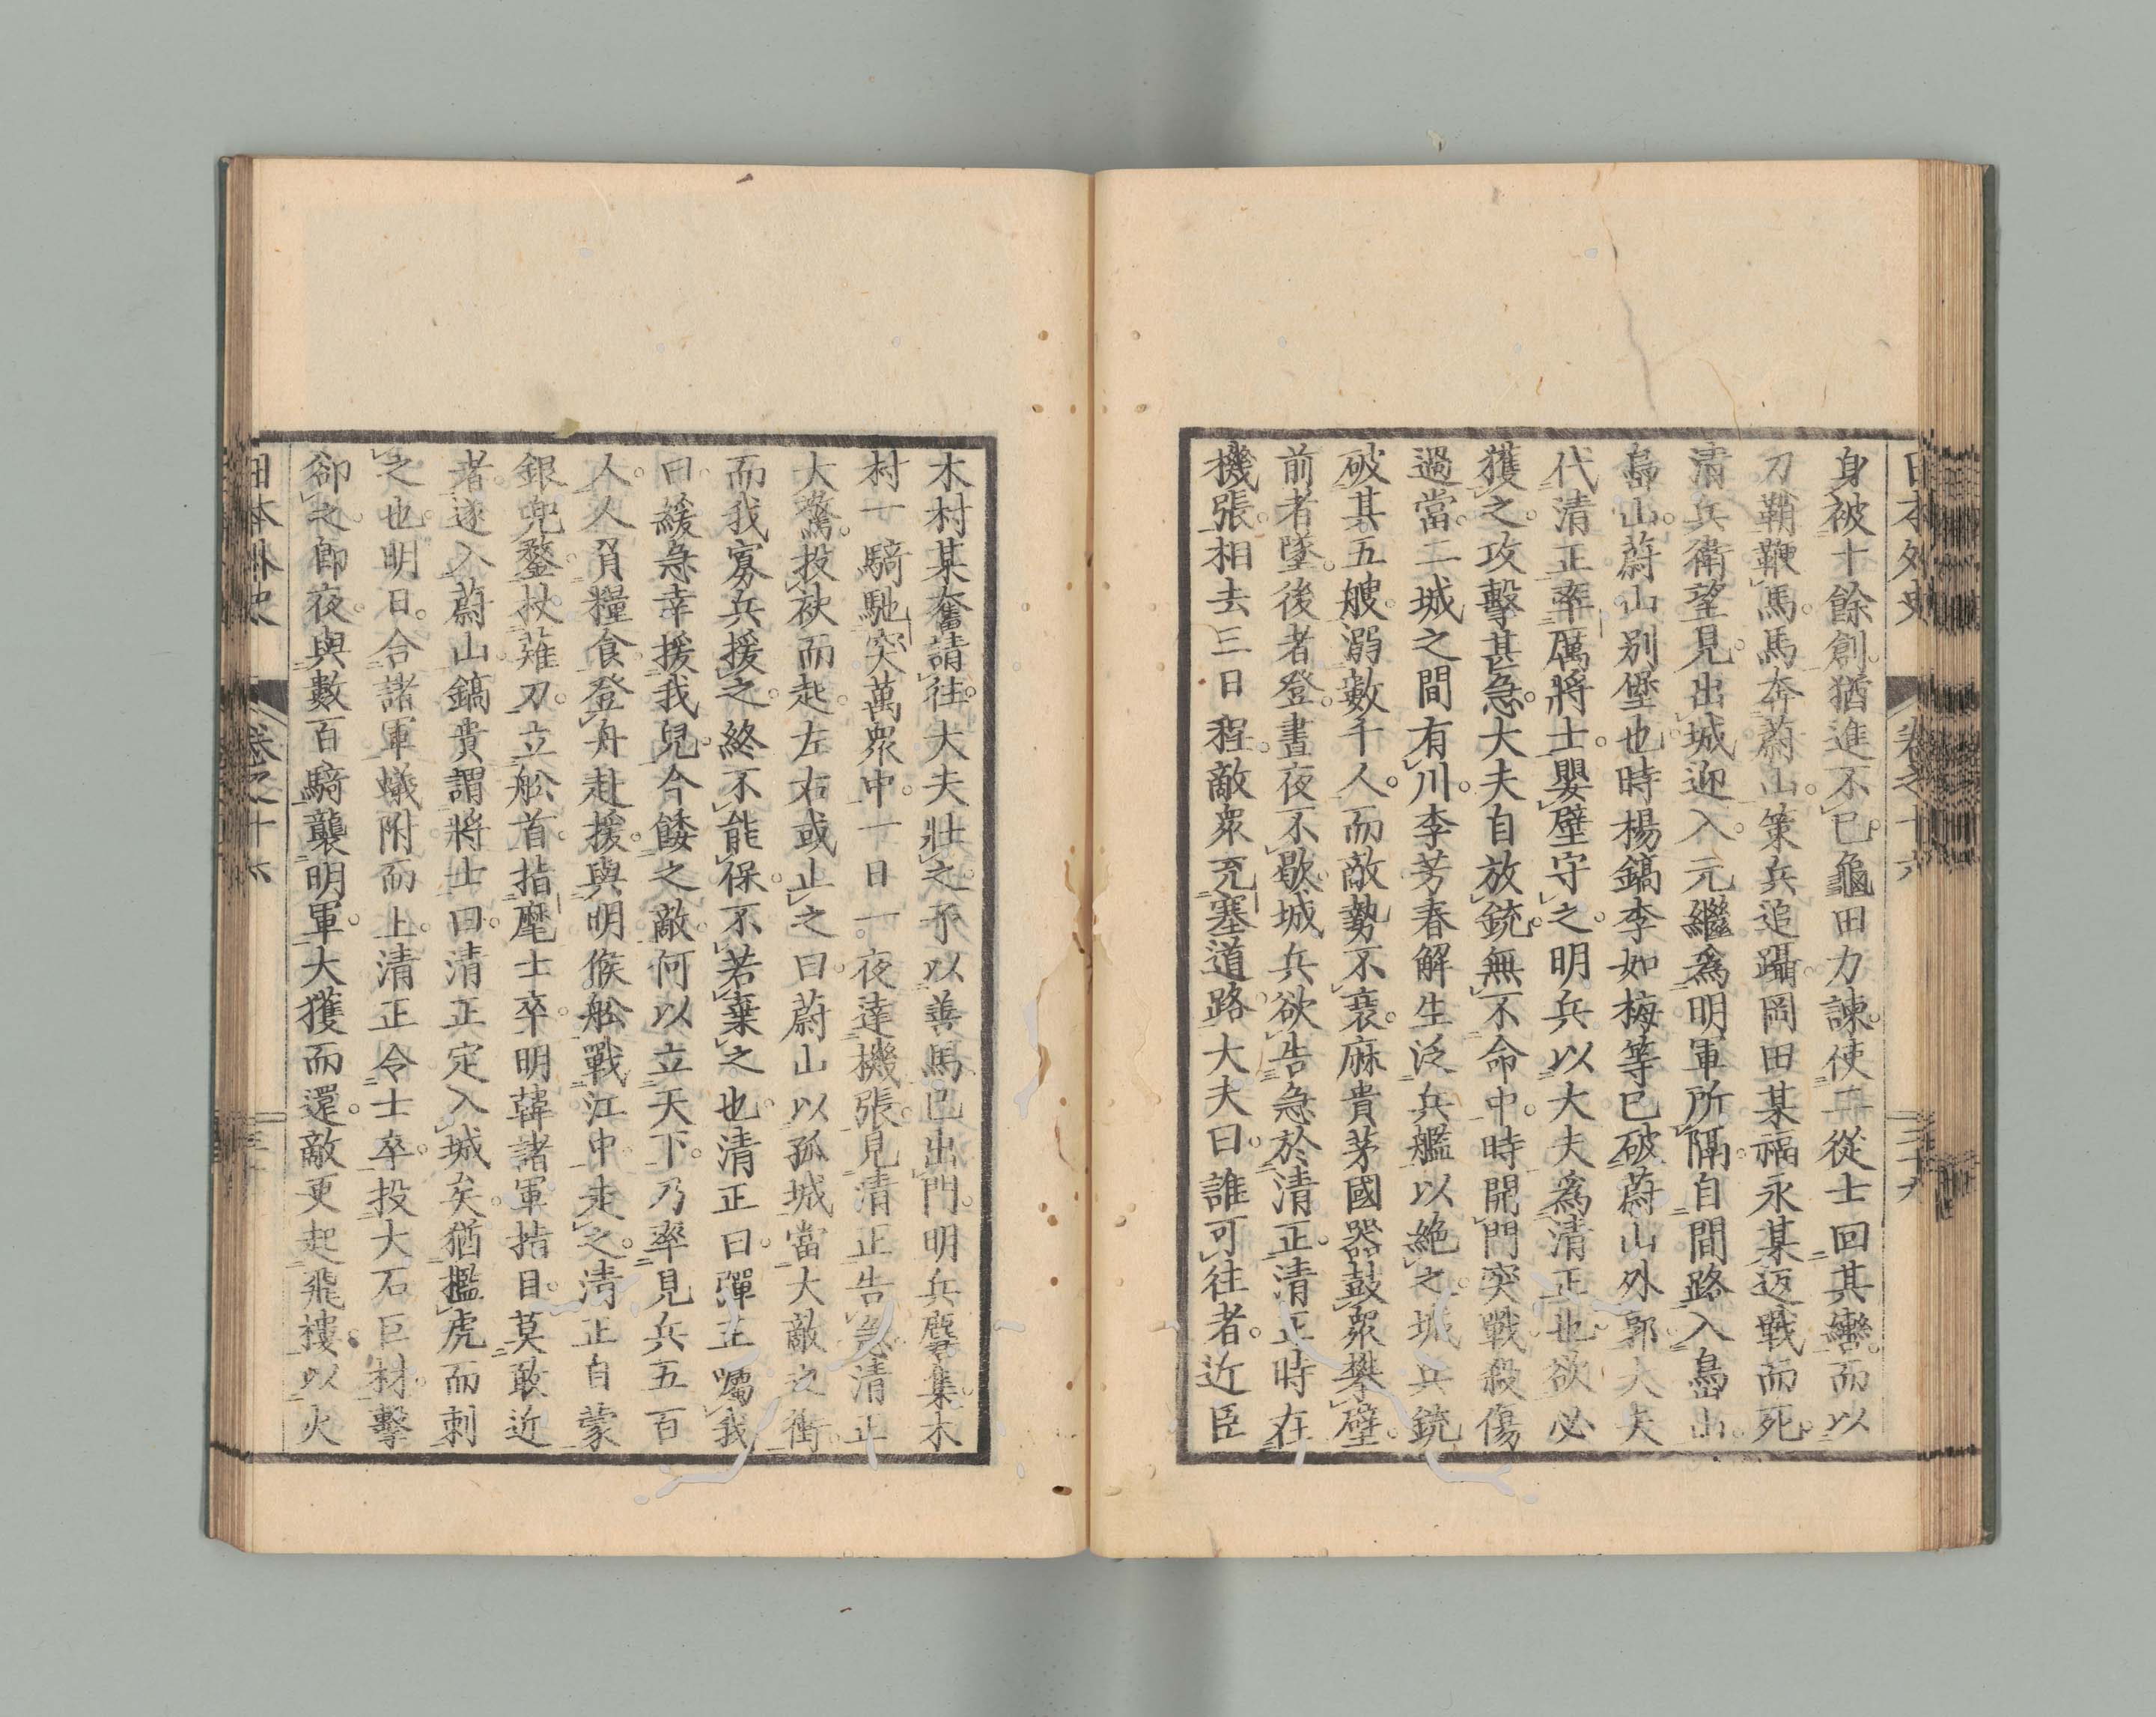 日本外史 卷之十六 二十九
身被十餘創。猶進不已。龜田力諫。使再從士回其轡。而以
刀鞘鞭馬。馬奔蔚山。策兵追躡。岡田某福永某返戰而死。
清兵衛望見。出城迎入。元繼爲明軍所隔。自間路入島山。
島山。蔚山別堡也。時楊鎬李如梅等已破蔚山外郭。大夫
代清正率厲將士。嬰壁守之。明兵以大夫爲清正也。欲必
獲之。攻擊甚急。大夫自放銃。無不命中。時開門突戰。殺傷
過當。二城之間有川。李芳春解生泛兵艦以絶之。城兵銃
破其五艘。溺數千人。而敵勢不衰。麻貴茅國器鼓衆攀壁。
前者墜。後者登。晝夜不歇。城兵欲告急於清正。清正時在
機張。相去三日程。敵衆充塞道路。大夫曰。誰可往者。近臣
木村某奮請往。大夫壯之。予以善馬。已出門。明兵麕集。木
村一騎馳突萬衆中。一日一夜達機張。見清正告急。清正
大驚。投袂而起。左右或止之曰。蔚山以孤城當大敵之衝。
而我寡兵援之。終不能保。不若棄之也。清正曰。彈正囑我
曰。緩急幸援我兒。今餧之敵。何以立天下。乃率見兵五百
人。人負糧食。登舟赴援。與明候舩戰江中。走之。清正自蒙
銀兜鍪。扙薙刀。立舩首。指麾士卒。明韓諸軍指目。莫敢近
者。遂入蔚山。鎬貴謂將士曰。清正定入城矣。猶檻虎而刺
之也。明日。合諸軍蟻附而上。清正令士卒。投大石巨材。擊
卻之。卽夜與數百騎襲明軍。大獲而還。敵更起飛樓。以火
日本外史 卷之十六